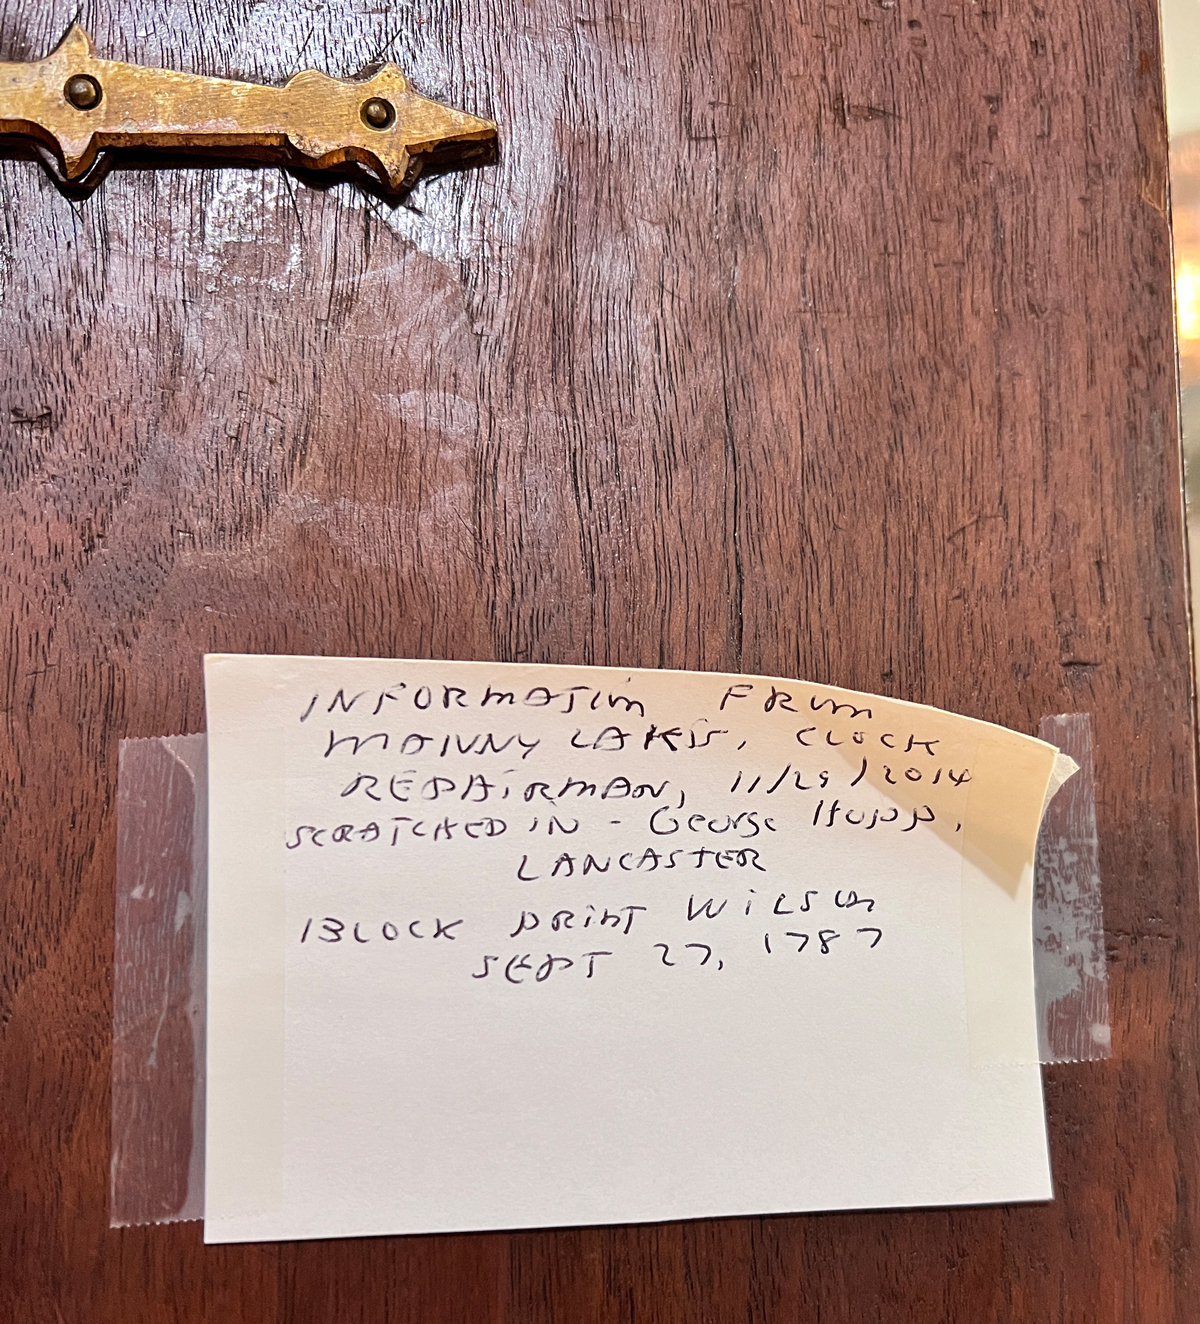 INFORMATION FROM
MANNY LAKIS, CLOCK
REPAIRMAN, 11/29/2014
SCRATCHED IN - George Hupp,
LANCASTER
BLOCK PRINT WILSON
SEPT 27, 1787